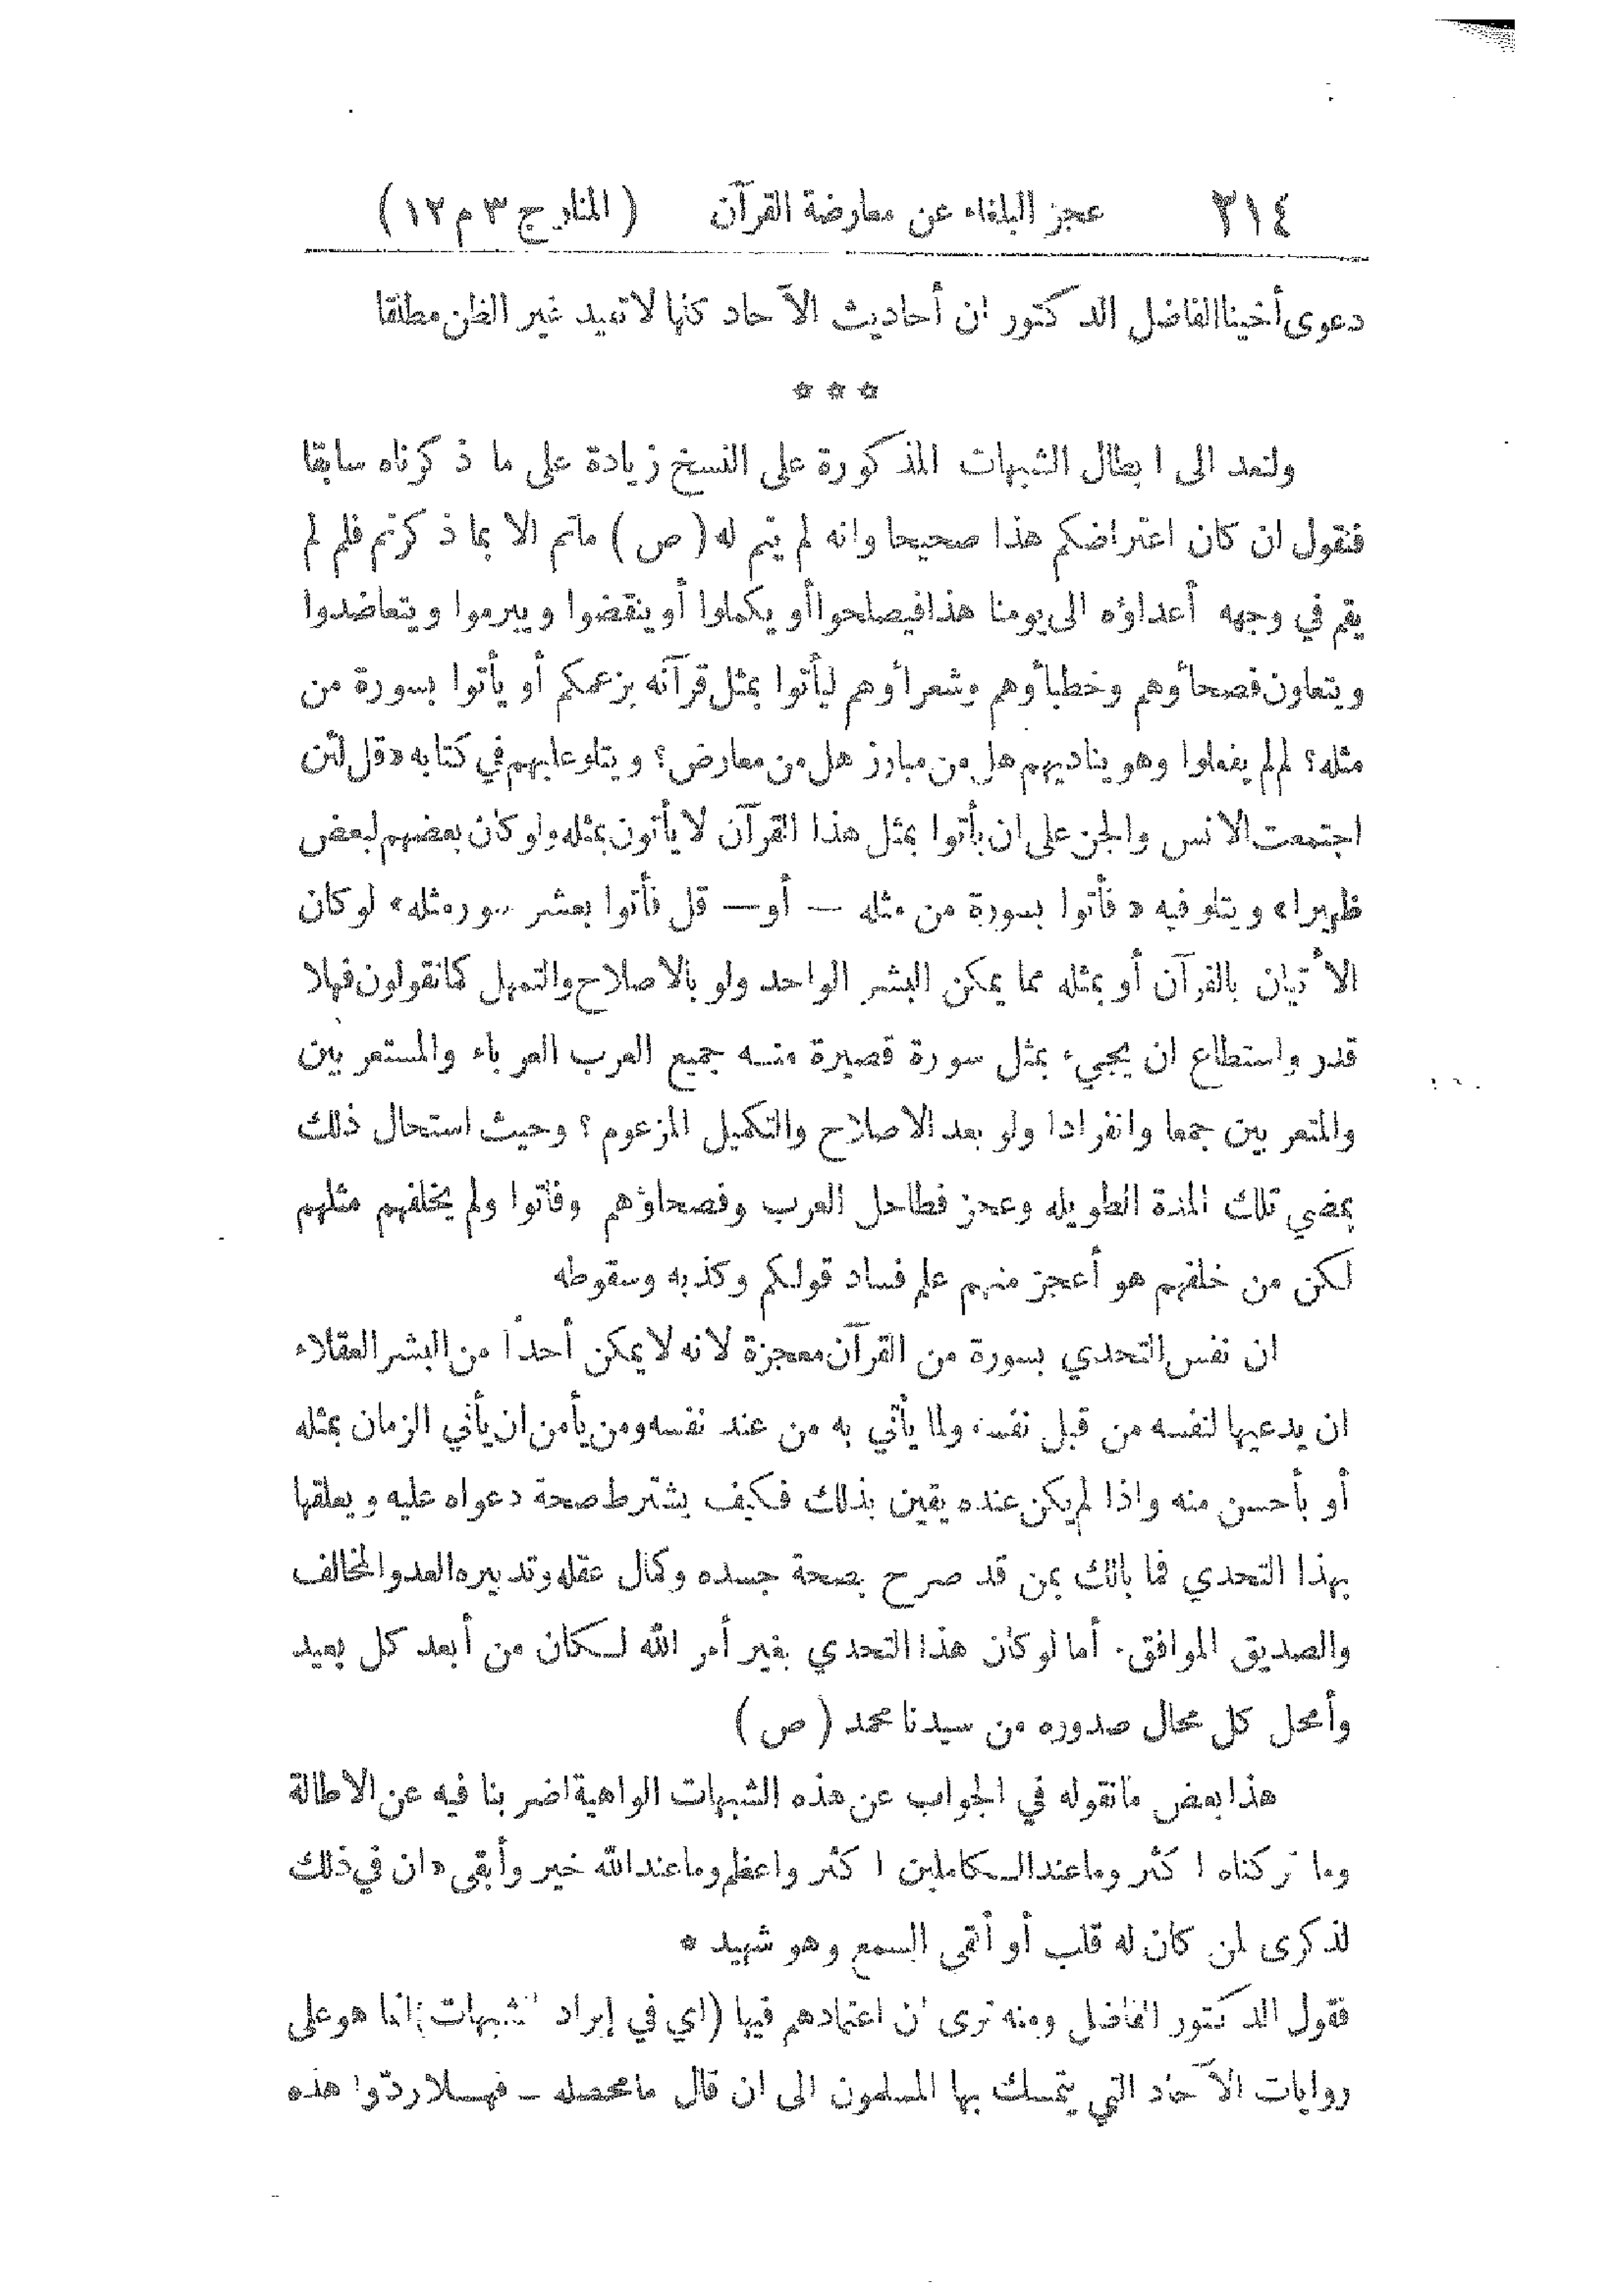 ٢١٤ عجز البلغاء عن معارضة القرآن (المنار ج ٣ م ١٢)
دعوى أخينا الفاضل الدكتور ان أحاديث الآحاد كلها لا تفيد غير الظن مطلقا
* * *
ولنعد الى ابطال الشبهات المذكورة على النسخ زيادة على ما ذكرناه سابقا
فنقول ان كان اعتراضكم هذا صحيحا وانه لم يتم له (ص) ماتم الا بما ذكرتم فلم لم
يقم في وجهه أعداؤه الى يومنا هذا فيصلحوا أو يكملوا أو ينقضوا ويبرموا ويتعاضدوا
ويتعاون فصحاؤهم وخطباؤهم وشعراؤهم ليأتوا بمثل قرآنه بزعمكم أو يأتوا بسورة من
مثله؟ لم لم يفعلوا وهو يناديهم هل من مبارز هل من معارض؟ ويتلو عليهم في كتابه «قل لئن
اجتمعت الانس والجن على ان يأتوا بمثل هذا القرآن لا يأتون بمثله ولو كان بعضهم لبعض
ظهيرا» ويتلو فيه «فأتوا بسورة من مثله — أو — قل فأتوا بعشر سور مثله» لو كان
الأتيان بالقرآن أو بمثله مما يمكن البشر الواحد ولو بالاصلاح والتمهل كما تقولون فهلا
قدر واستطاع ان يجيء بمثل سورة قصيرة منه جميع العرب العرباء والمستعربين
والمتعربين جمعا وانفرادا ولو بعد الاصلاح والتكميل المزعوم؟ وحيث استحال ذلك
بمضي تلك المدة الطويله وعجز فطاحل العرب وفصحاؤهم وفاتوا ولم يخلفهم مثلهم
لكن من خلفهم هو أعجز منهم علم فساد قولكم وكذبه وسقوطه
ان نفس التحدي بسورة من القرآن معجزة لانه لا يمكن أحداً من البشر العقلاء
ان يدعيها لنفسه من قبل نفسه ولما يأتي به من عند نفسه ومن يأمن ان يأتي الزمان بمثله
أو بأحسن منه واذا لم يكن عنده يقين بذلك فكيف يشترط صحة دعواه عليه ويعلقها
بهذا التحدي فما بالك بمن قد صرح بصحة جسده وكمال عقله وتدبيره العدو المخالف
والصديق الموافق. أما لو كان هذا التحدي بغير أمر الله لكان من أبعد كل بعيد
وأمحل كل محال صدوره من سيدنا محمد (ص)
هذا بعض ما نقوله في الجواب عن هذه الشبهات الواهية اضربنا فيه عن الاطالة
وما تركناه اكثر وما عند الكاملين اكثر واعظم وما عند الله خير وأبقى «ان في ذلك
لذكرى لمن كان له قلب أو ألقى السمع وهو شهيد *
فقول الدكتور الفاضل ومنه ترى ان اعتمادهم فيها (اي في إيراد الشبهات) انما هو على
روايات الآحاد التي يتمسك بها المسلمون الى ان قال ما محصله – فهلا ردّوا هذه